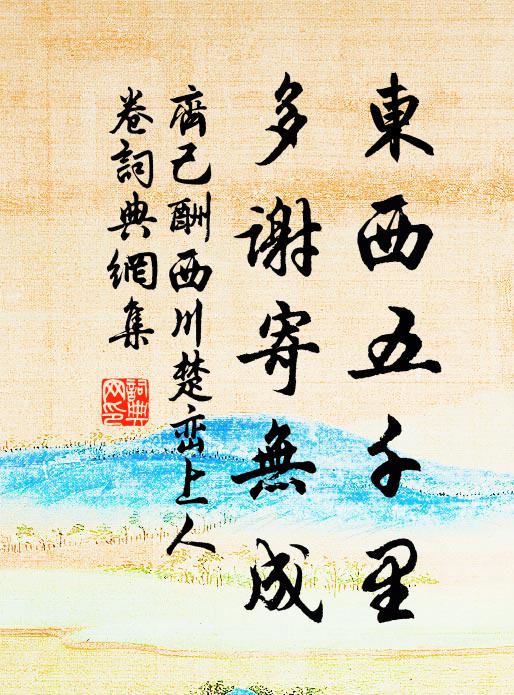 東西五千里
多謝寄無成
齊己酬西川楚巒上人
卷詞典網集
詞典
网印